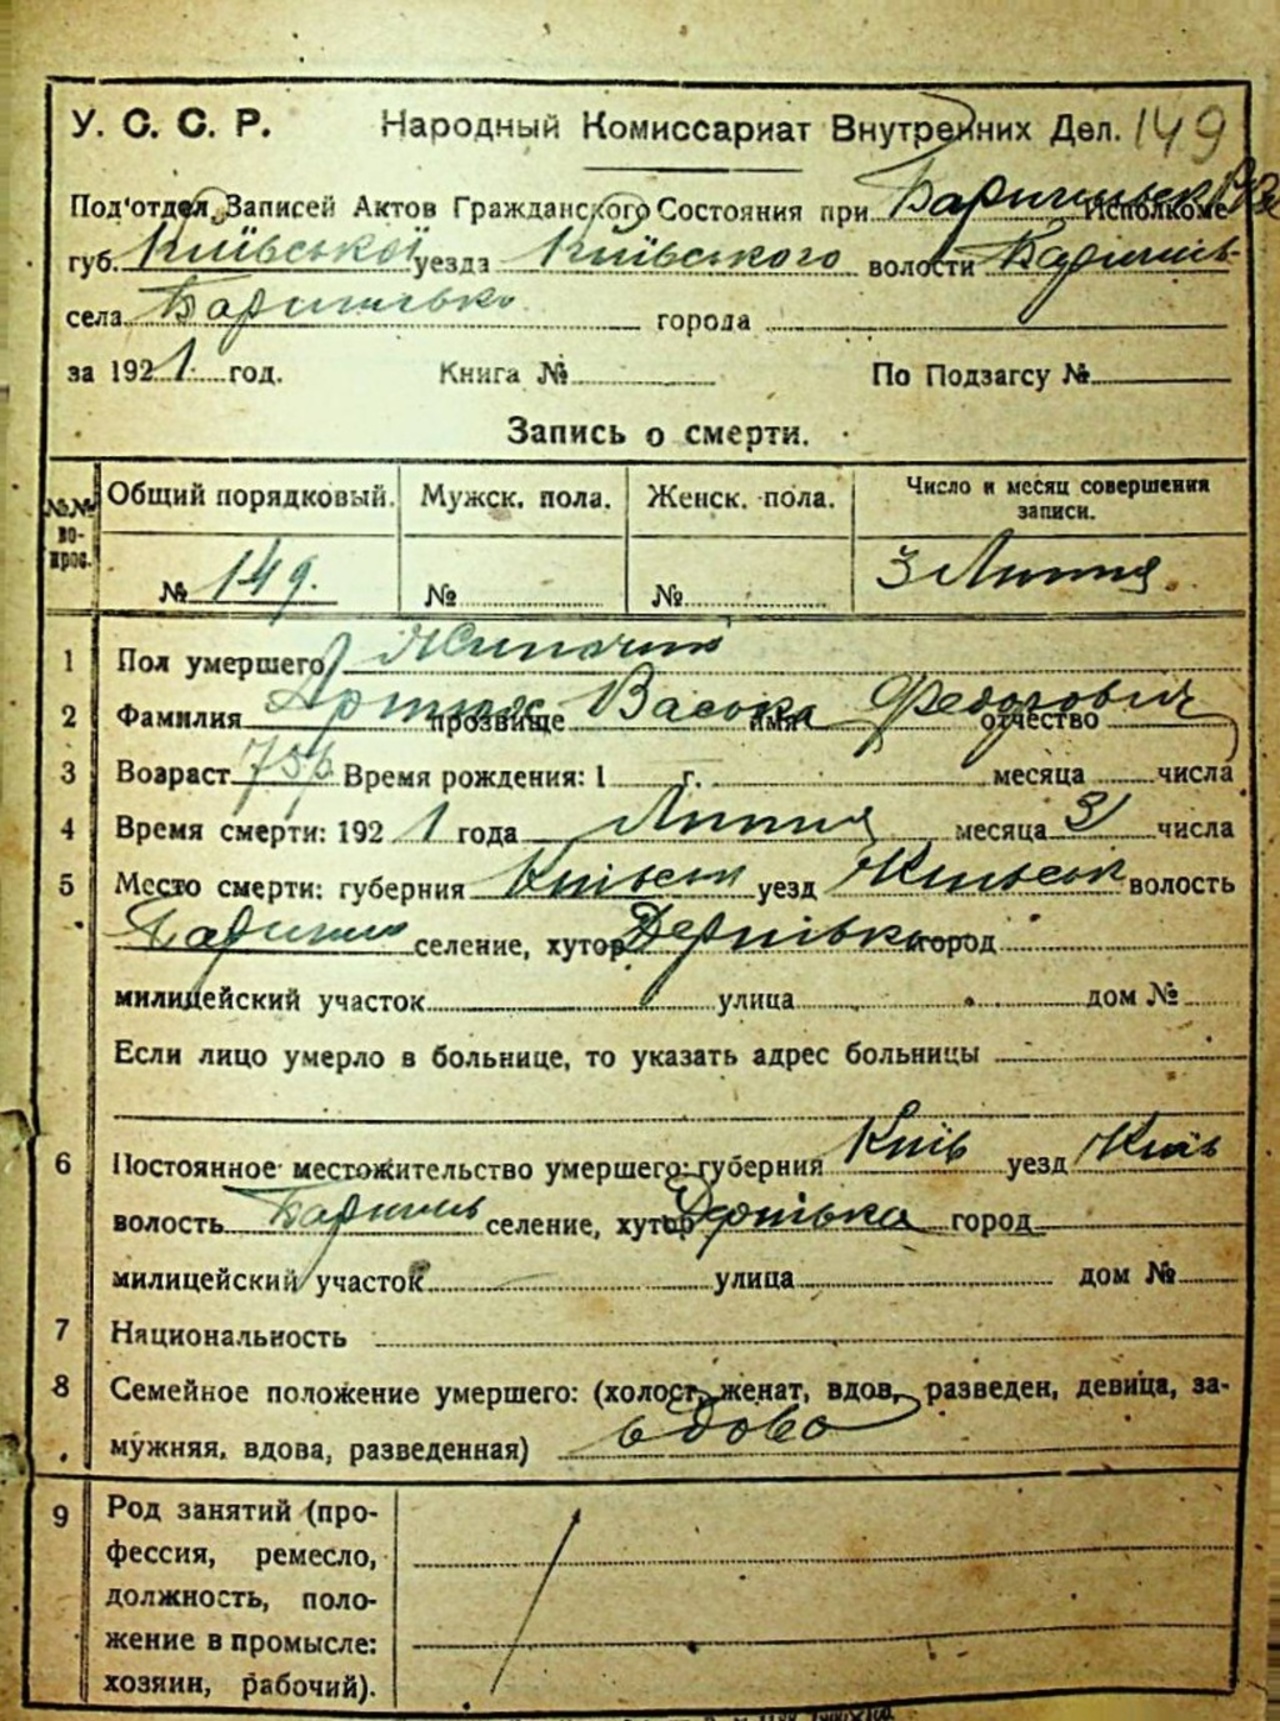 У. С. С. Р. Народный Комиссариат Внутренних Дел. 149
Под'отдел Записей Актов Гражданского Состояния при Исполкоме
губ. Київської уезда Київського волости
села города
за 1921 год. Книга № По Подзагсу №
Запись о смерти.
№№ вопрос. Общий порядковый. Мужск. пола. Женск. пола. Число и месяц совершения записи.
№ 149. № № 3 Липня
1 Пол умершего
2 Фамилия прозвище имя Федорович отчество
3 Возраст 75 Время рождения: 1 г. месяца числа
4 Время смерти: 1921 года Липня месяца 3 числа
5 Место смерти: губерния Київськ уезд Київськ волость
селение, хутор город
милицейский участок улица дом №
Если лицо умерло в больнице, то указать адрес больницы
6 Постоянное местожительство умершего: губерния Київ уезд Київ
волость селение, хутор город
милицейский участок улица дом №
7 Национальность
8 Семейное положение умершего: (холост, женат, вдов, разведен, девица, за-
мужняя, вдова, разведенная) вдова
9 Род занятий (про-
фессия, ремесло,
должность, поло-
жение в промысле:
хозяин, рабочий).